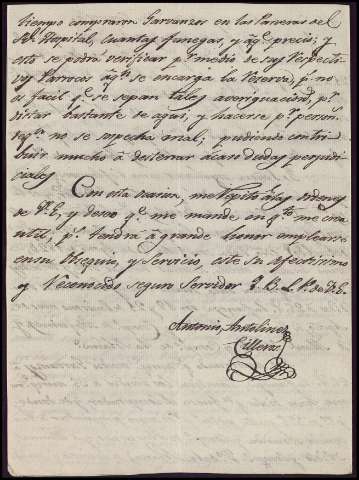 tiempo compraron Garvanzos en las Paneras del
Rl. Hospital, cuantas fanegas, y aq.e precio; y
esto se podrà verificar pr. medio de sus respecti-
vos Parrocos aqn. se encarga la reserva, pr. no
es facil q.e se sepan tales averiguaciones, pr.
distar bastante de aqui, y hacerse pr. person.
dequn. no se sospecha mal; pudiendo contri-
buir mucho à desterrar acaso dudas perjudi-
ciales.
Con esta ocasion, me repito alas ordenes
de V.E, y deseo q.e me mande en q.to me crea
util; pr. tendrà à grande honor emplearse
en su Obsequio, y Servicio, este su afectisimo
y reconocido segun Servidor Q. B. L. M. de V.E.
Antonio, Antolinez
Cilleros